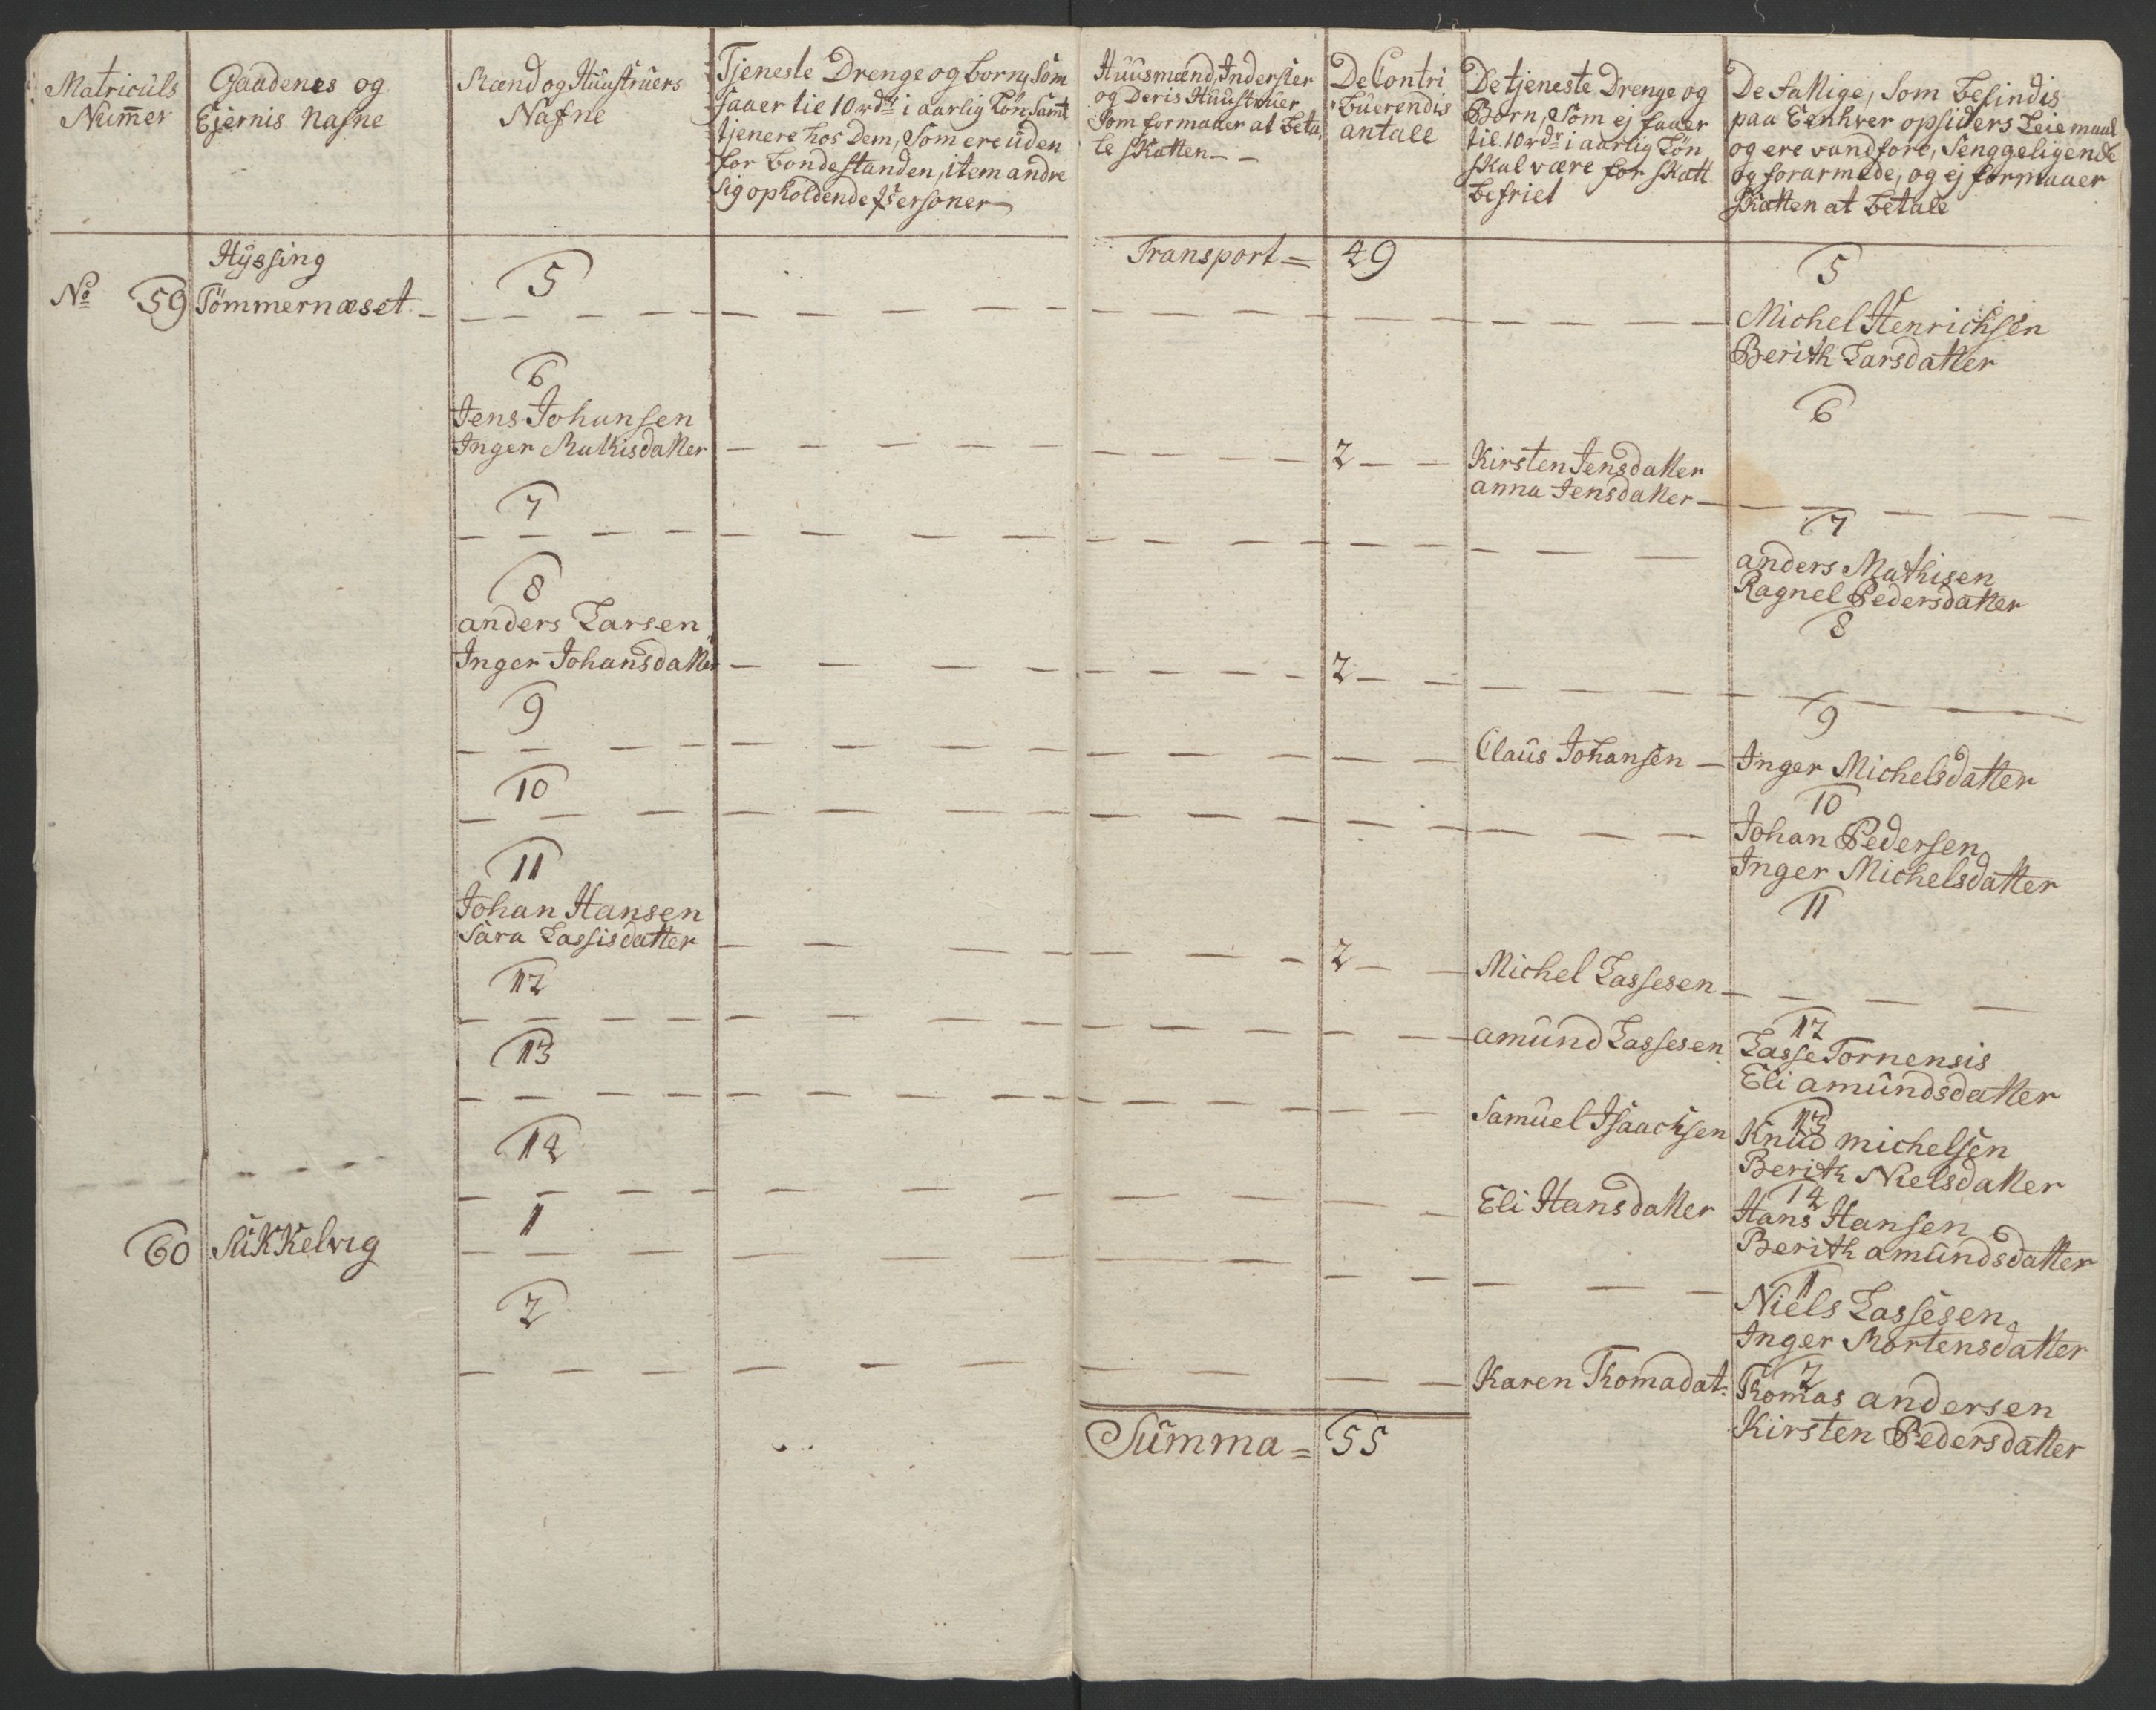 Matriculs
Nummer
Gaadenes og
Ejernis Nafne
Mænd og Huustruers
Nafne
Tjeneste Drenge og born, Som
faaer til 10 rdr i aarlig Løn, Samt
tjenere hos Dem, Som ere uden
for bondestanden, item andre
sig opholdende Personer
Huusmænd, Inderster
og Deris Huustruer
Som formaaer at beta,
le skatten
De Contri
buerendis
antall
De tjeneste Drenge og
Børn, Som ej faaer
til 10 rdr i aarlig Løn
skal være for skatt
befriet
De fattige, Som befindis
paa Eenhver opsiders Leiemaal
og ere vandføre, Senggeligende
og forarmede, og ej formaaer
skatten at betale
Hyssing
No 59 Tømmernæset
5
Transport = 49
5
Michel Henrichsen
Berith Larsdatter
6
Jens Johansen
Inger Mathisdatter
2
Kirsten Jensdatter
anna Jensdatter
6
7
7
anders Mathisen
Ragnel Pedersdatter
8
anders Larsen
Inger Johansdatter
2
8
9
Claus Johansen
9
Inger Michelsdatter
10
10
Johan Pedersen
Inger Michelsdatter
11
Johan Hansen
Sara Lassisdatter
2
Michel Lassesen
11
12
amund Lassesen
12
Lasse Tornensis
Eli amundsdatter
13
Samuel Isaachsen
13
Knud michelsen
Berith Nielsdatter
14
Eli Hansdatter
14
Hans Hansen
Berith amundsdatter
60 Sukkelvig
1
1
Niels Lassesen
Inger Mortensdatter
2
Karen Thomadat:
2
Thomas andersen
Kirsten Pedersdatter
Summa = 55